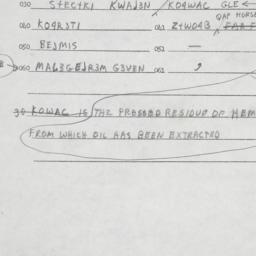 030 STECTKI KWAJ3N / KO4WAC GLE
QAP HORSE
040 KO4R3TI 041 Z+WO4B
050 BEJMIS 051 —
060 MAL3GEJR3M G3VEN 061 ,
30 KOWAC IS THE PRESSED RESIDUE OF HEM
FROM WHICH OIL HAS BEEN EXTRACTED